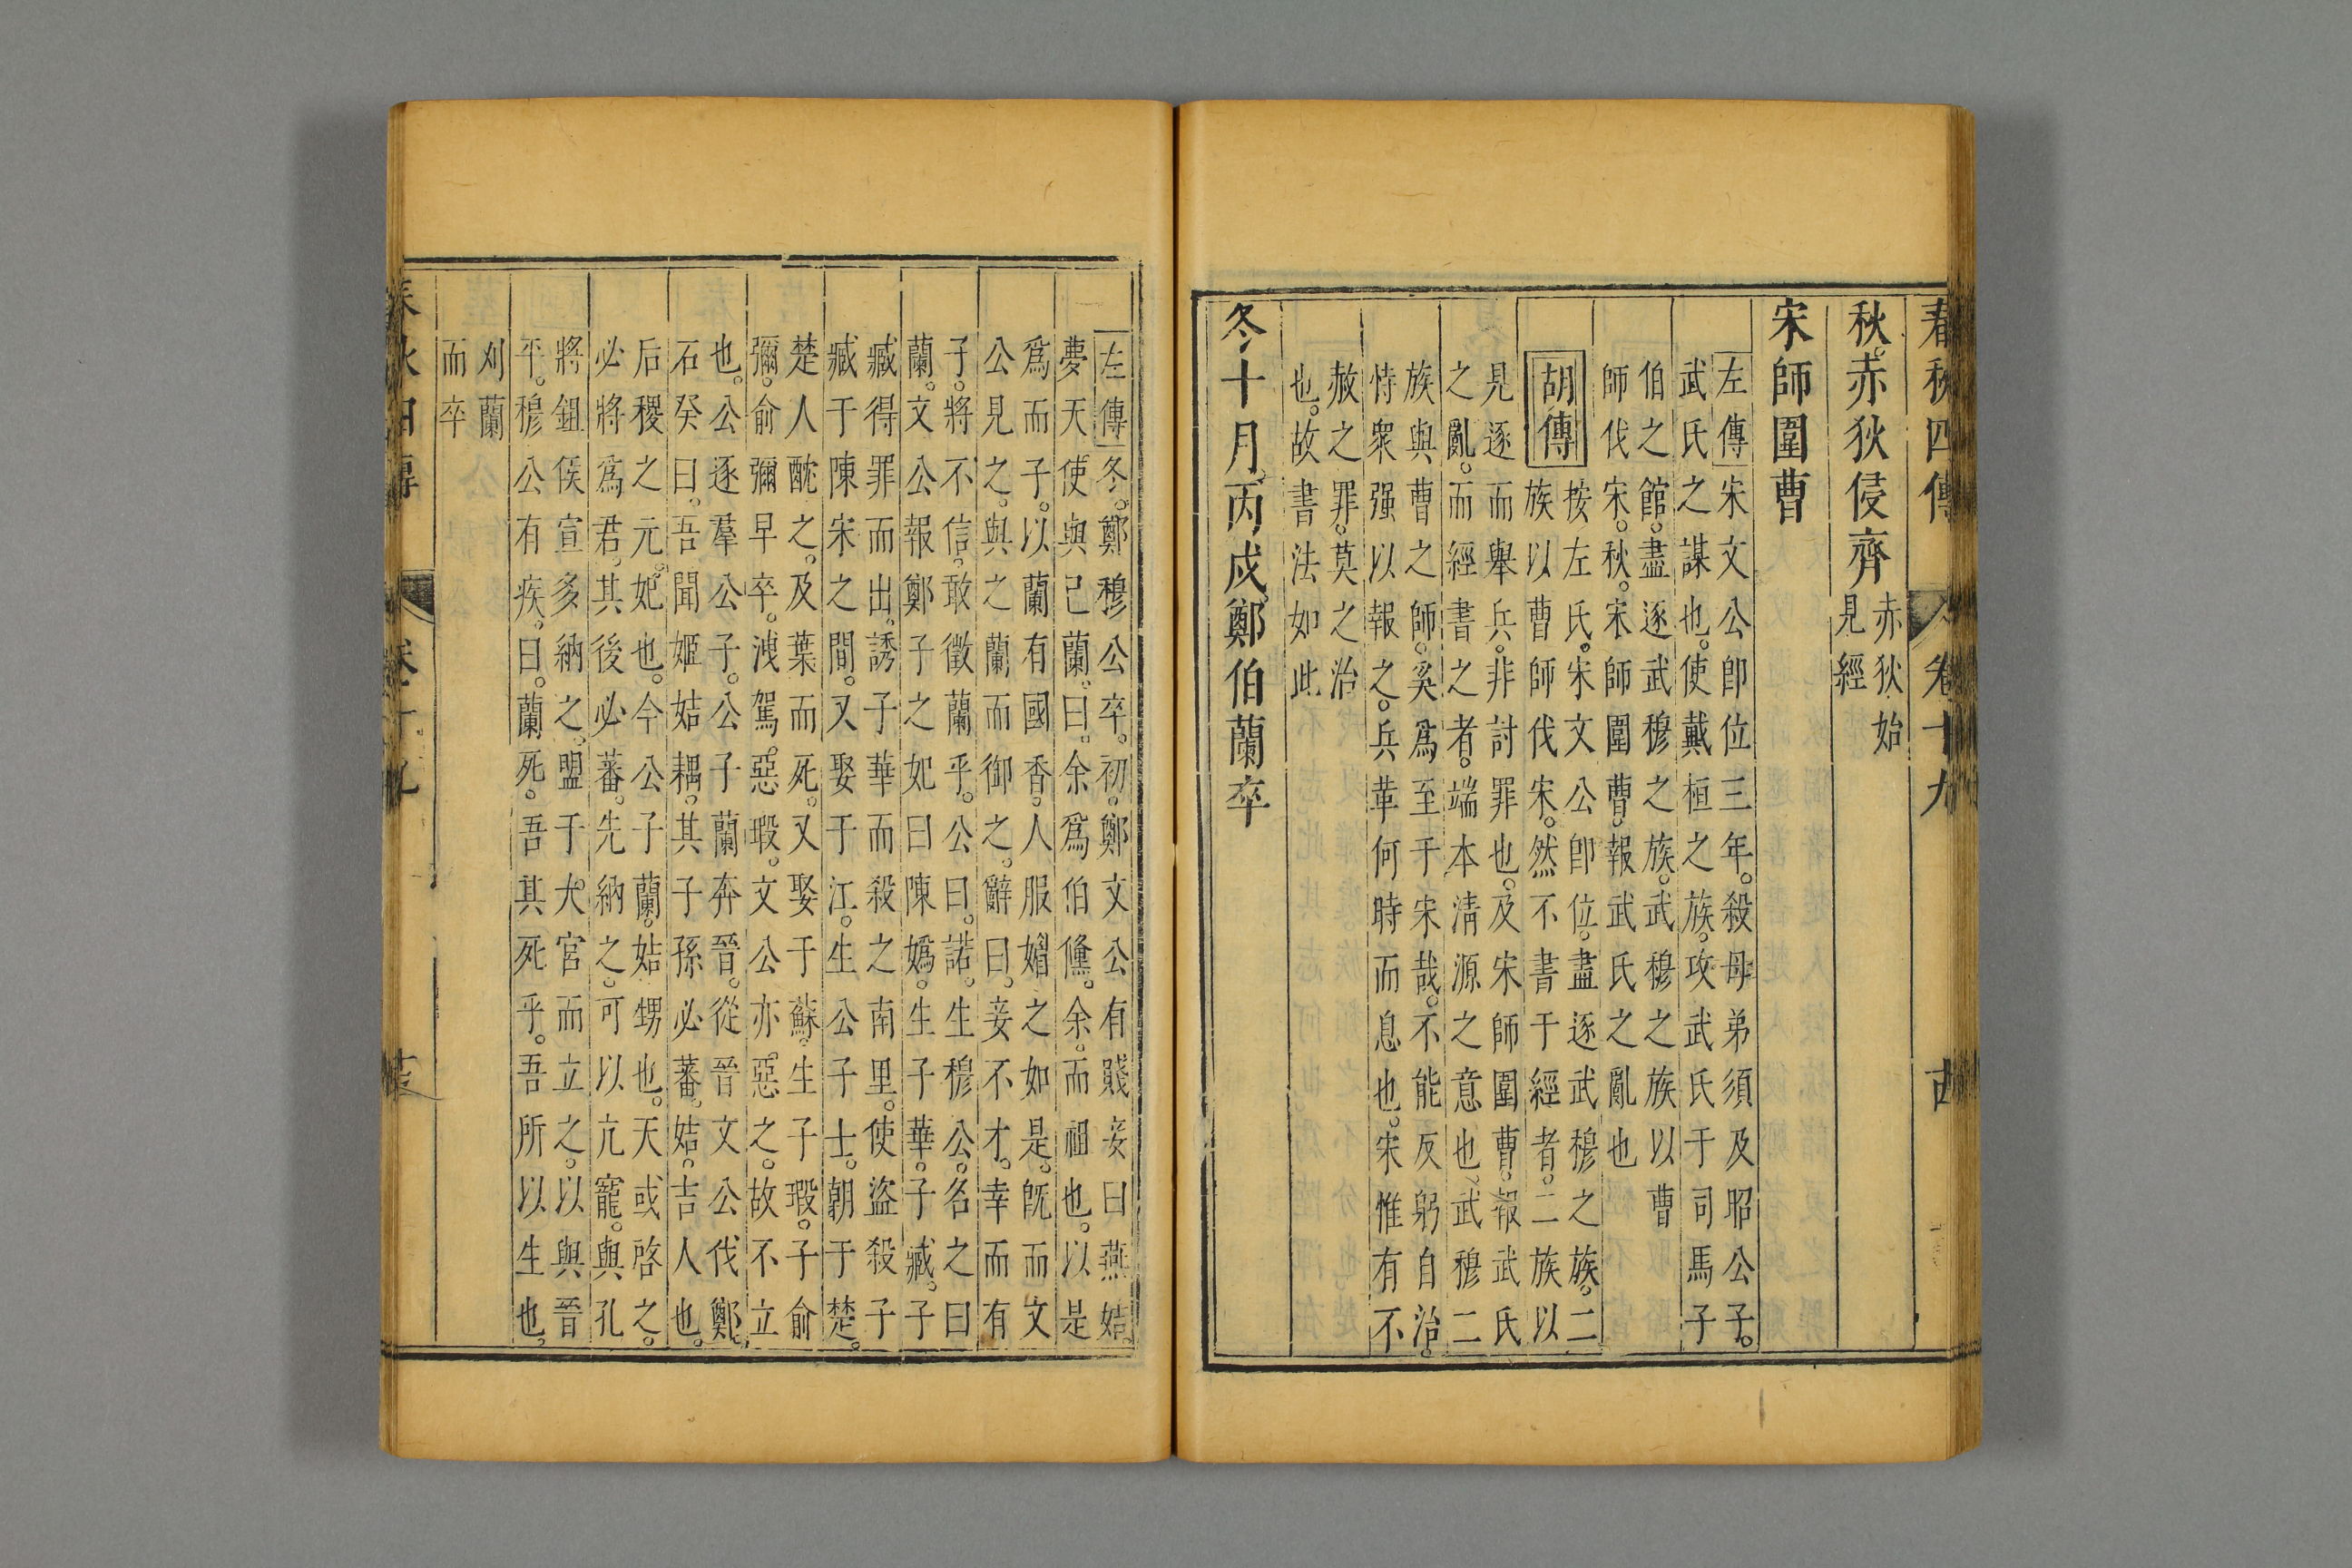 春秋四傳 卷十九
秋。赤狄侵齊
赤狄始
見經
宋師圍曹
左傳宋文公即位三年。殺母弟須及昭公子。
武氏之謀也。使戴桓之族。攻武氏于司馬子
伯之館。盡逐武穆之族。武穆之族以曹
師伐宋。秋。宋師圍曹。報武氏之亂也
胡傳
按左氏。宋文公即位。盡逐武穆之族。二
族以曹師伐宋。然不書于經者。二族以
見逐而舉兵。非討罪也。及宋師圍曹。報武氏
之亂。而經書之者。端本清源之意也。武穆二
族與曹之師。奚爲至于宋哉。不能反躬自治。
恃衆强以報之。兵革何時而息也。宋惟有不
赦之罪。莫之治
也。故書法如此
冬十月。丙戌。鄭伯蘭卒
左傳冬。鄭穆公卒。初。鄭文公有賤妾曰燕姞。
夢天使與己蘭。曰。余爲伯鯈。余。而祖也。以是
爲而子。以蘭有國香。人服媚之如是。旣而文
公見之。與之蘭而御之。辭曰。妾不才。幸而有
子。將不信。敢徵蘭乎。公曰。諾。生穆公。名之曰
蘭。文公報鄭子之妃曰陳嬀。生子華。子臧。子
臧得罪而出。誘子華而殺之南里。使盜殺子
臧于陳宋之間。又娶于江。生公子士。朝于楚。
楚人酖之。及葉而死。又娶于蘇。生子瑕。子俞
彌。俞彌早卒。洩駕。惡瑕。文公亦惡之。故不立
也。公逐羣公子。公子蘭奔晉。從晉文公伐鄭。
石癸曰。吾聞姬姞耦。其子孫必蕃。姞。吉人也。
后稷之元妃也。今公子蘭。姞甥也。天或啓之。
必將爲君。其後必蕃。先納之。可以亢寵。與孔
將鉏侯宣多納之。盟于大宮而立之。以與晉
平。穆公有疾。曰。蘭死。吾其死乎。吾所以生也。
刈蘭
而卒